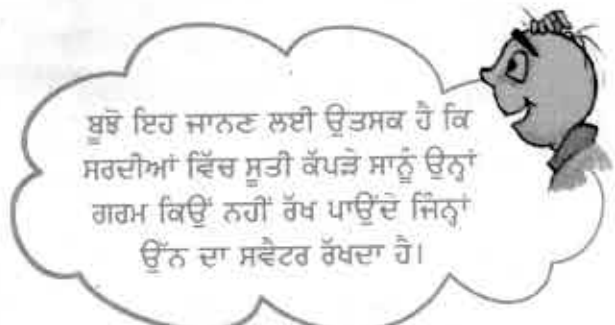 ਬੂਝੋ ਇਹ ਜਾਨਣ ਲਈ ਉਤਸਕ ਹੈ ਕਿ
ਸਰਦੀਆਂ ਵਿੱਚ ਸੂਤੀ ਕੱਪੜੇ ਸਾਨੂੰ ਉਨ੍ਹਾਂ
ਗਰਮ ਕਿਉਂ ਨਹੀਂ ਰੱਖ ਪਾਉਂਦੇ ਜਿੰਨ੍ਹਾਂ
ਉੱਨ ਦਾ ਸਵੈਟਰ ਰੱਖਦਾ ਹੈ।